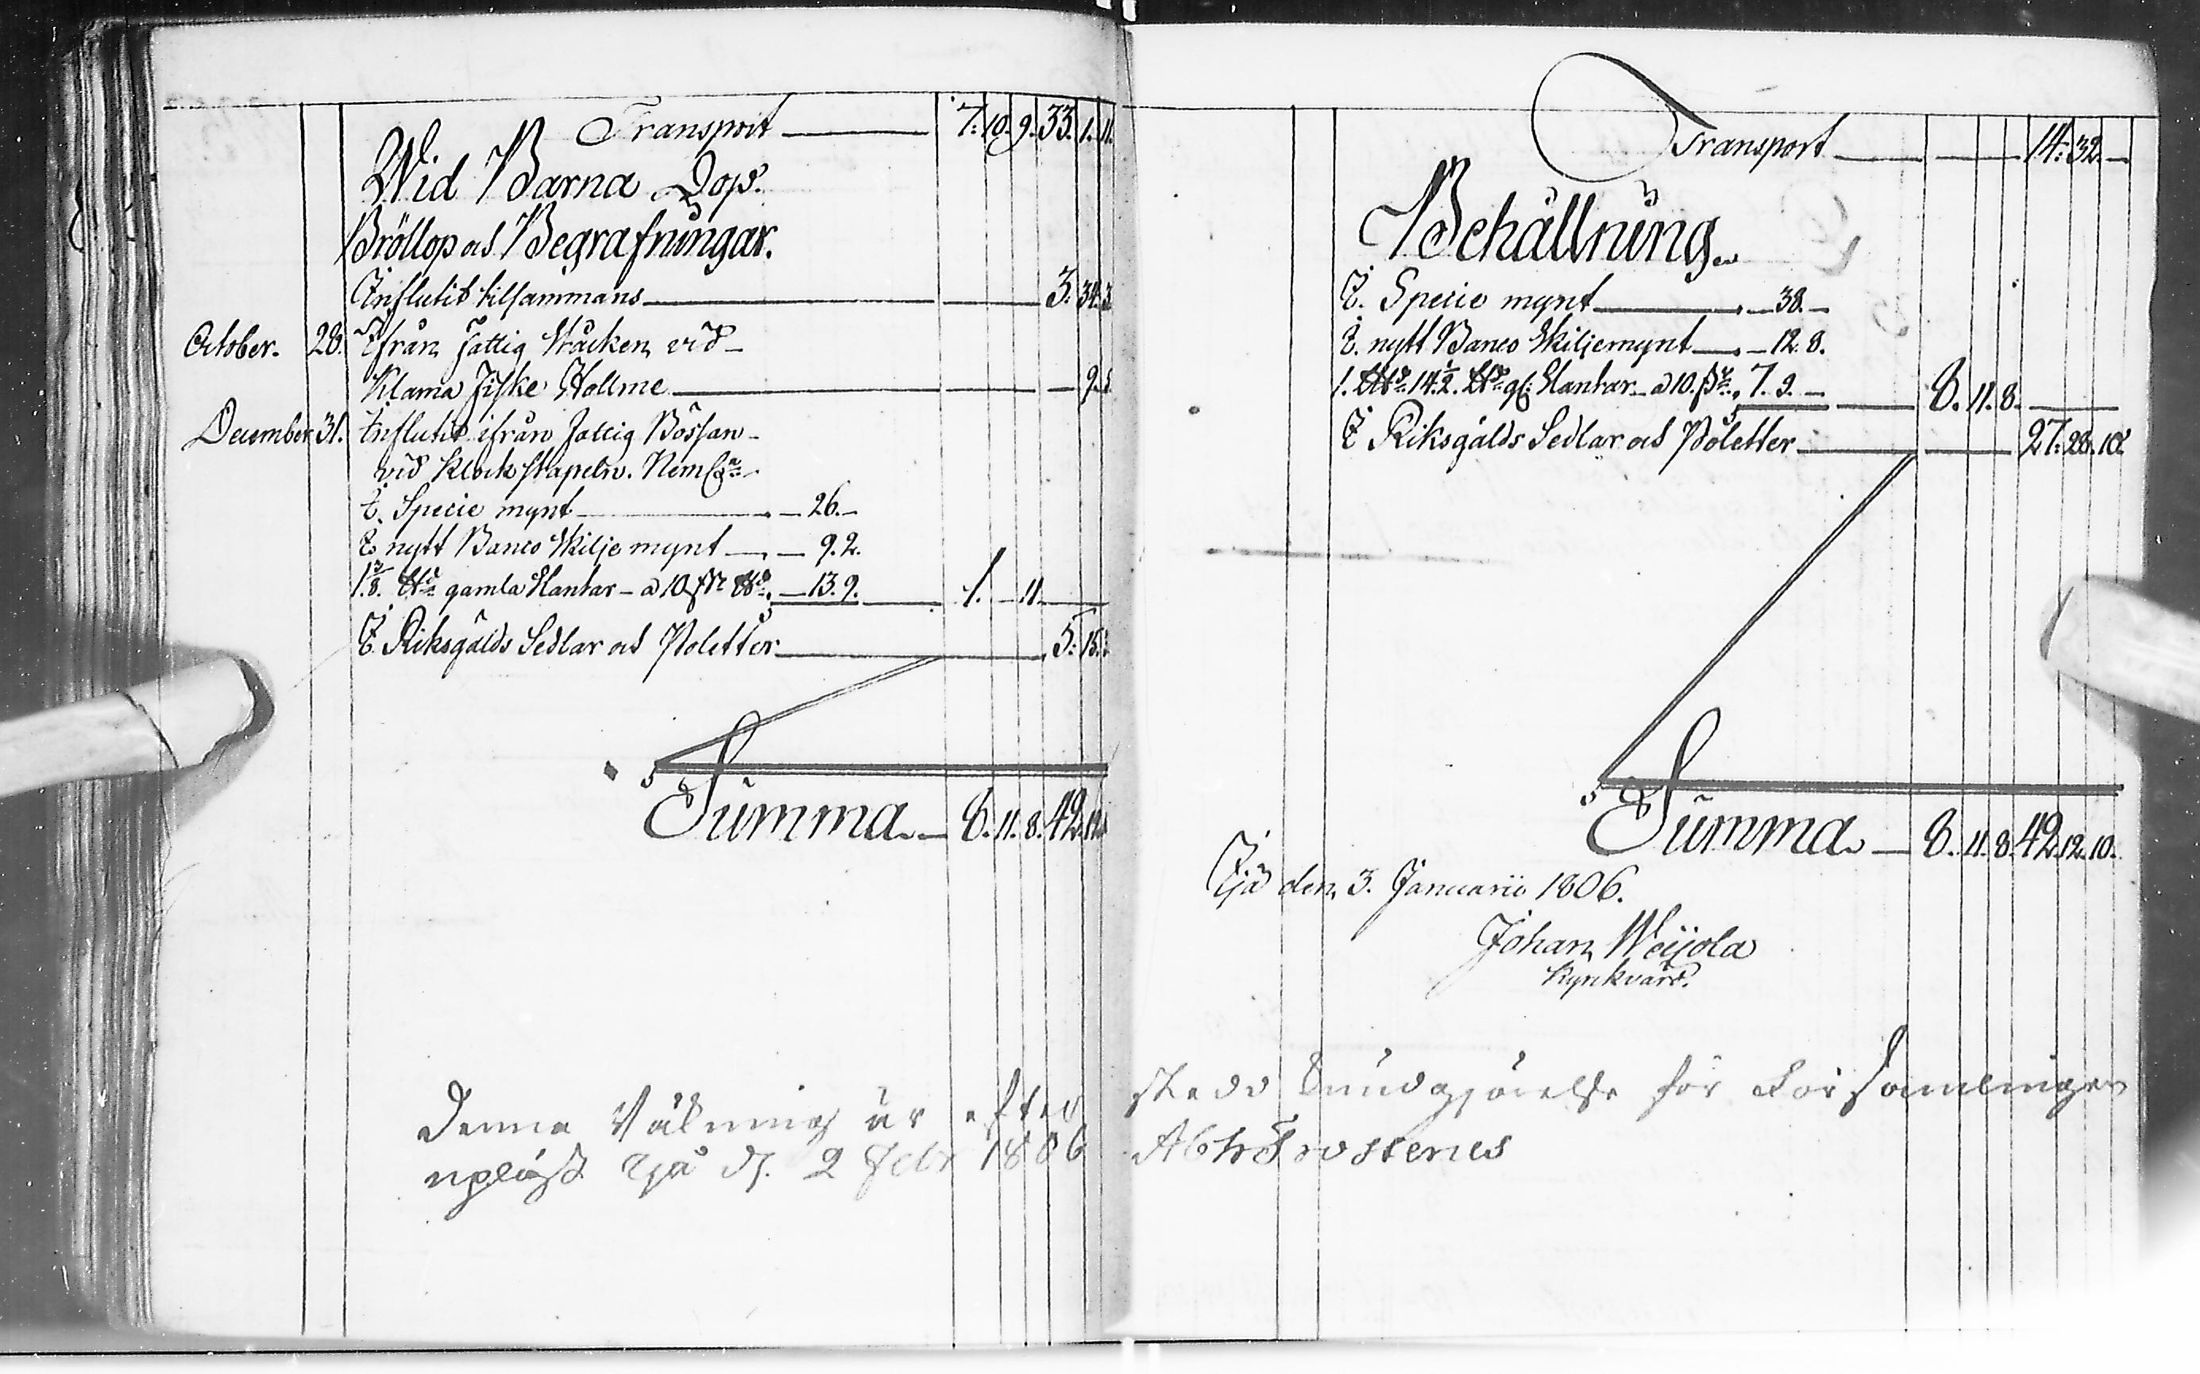 Transport — 7. 10. 9. 33. 1. 11.
Wid Barna Dop.
Bröllop och Begrafningar.
Influtit tilsammans — 3. 34. 3
October. 28. Ifrån Fattig Stäcken vid
Klama Fiske Hollme — 9.
December 31. Influtit ifrån Fattig Bössan
vid Klockstapeln. Neml:n
I. Specie mynt — 26. —
I nytt Banco Skiljemynt — 9. 2.
1 3/8. L℔ gamla Slantar a 10 — 13. 9. — 1. — 11.
I Riksgälds Sedlar och Poletter — 5. 15.
Summa. — 8. 11. 8. 42. 12.
Denna Räkning är efter
upläst Ijå d. 2 Febr 1806
Transport — 14. 32. —
Behållning.
I. Specie mynt — 38. —
I. nytt Banco Skiljemynt — 12. 8.
1. 14 1/2. gl: Slantar a 10. 7. 9. — 8. 11. 8.
I Riksgälds Sedlar och Poletter — 27. 28. 10
Summa. — 8. 11. 8. 42. 12. 10.
Ijå den 3. Januarii 1806.
Johan Weijola
Kyrkvärd.
skedd kundgjörelse för Församlingen
Ab:h Frosterus